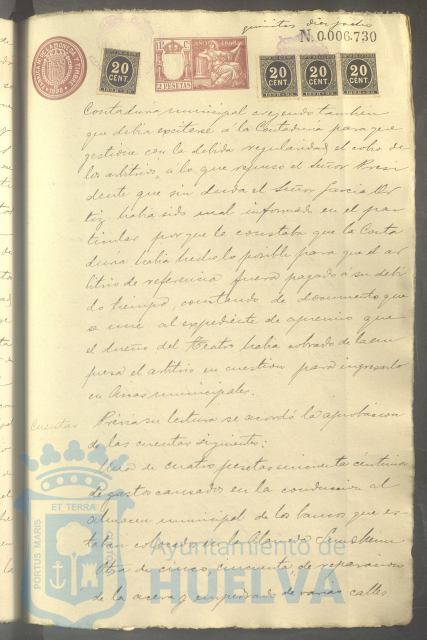 N. 0.006.730
20 CENT.
2 PESETAS
20 CENT.
20 CENT.
20 CENT.
Contaduria municipal creyendo tambien
que debia excitarse á la Contaduria para que
gestione con la debida regularidad el cobro de
los arbitrios, a lo que repuso el Señor Presi
dente que sin duda el Señor Garcia Or
tiz habia sido mal informado en el par
ticular porque le constaba que la Conta
duria habia hecho lo posible para que el ar
bitrio de referencia fuera pagado á su debi
do tiempo, constando de documento que
se une al expediente de apremio que
el dueño del Teatro habia cobrado de la em
presa el arbitrio en cuestion para ingresarlo
en Arcas municipales.
Cuentas Prévia su lectura se acordó la aprobacion
de las cuentas siguientes:
Una de cuatro pesetas cincuenta centimos
de gastos causados en la conduccion al
almacen municipal de los bancos que es
taban colocados en la
Otra de cinco cincuenta de reparacion
de la acera y empedrado de varias calles
PORTUS MARIS ET TERRÆ
Ayuntamiento de
HUELVA